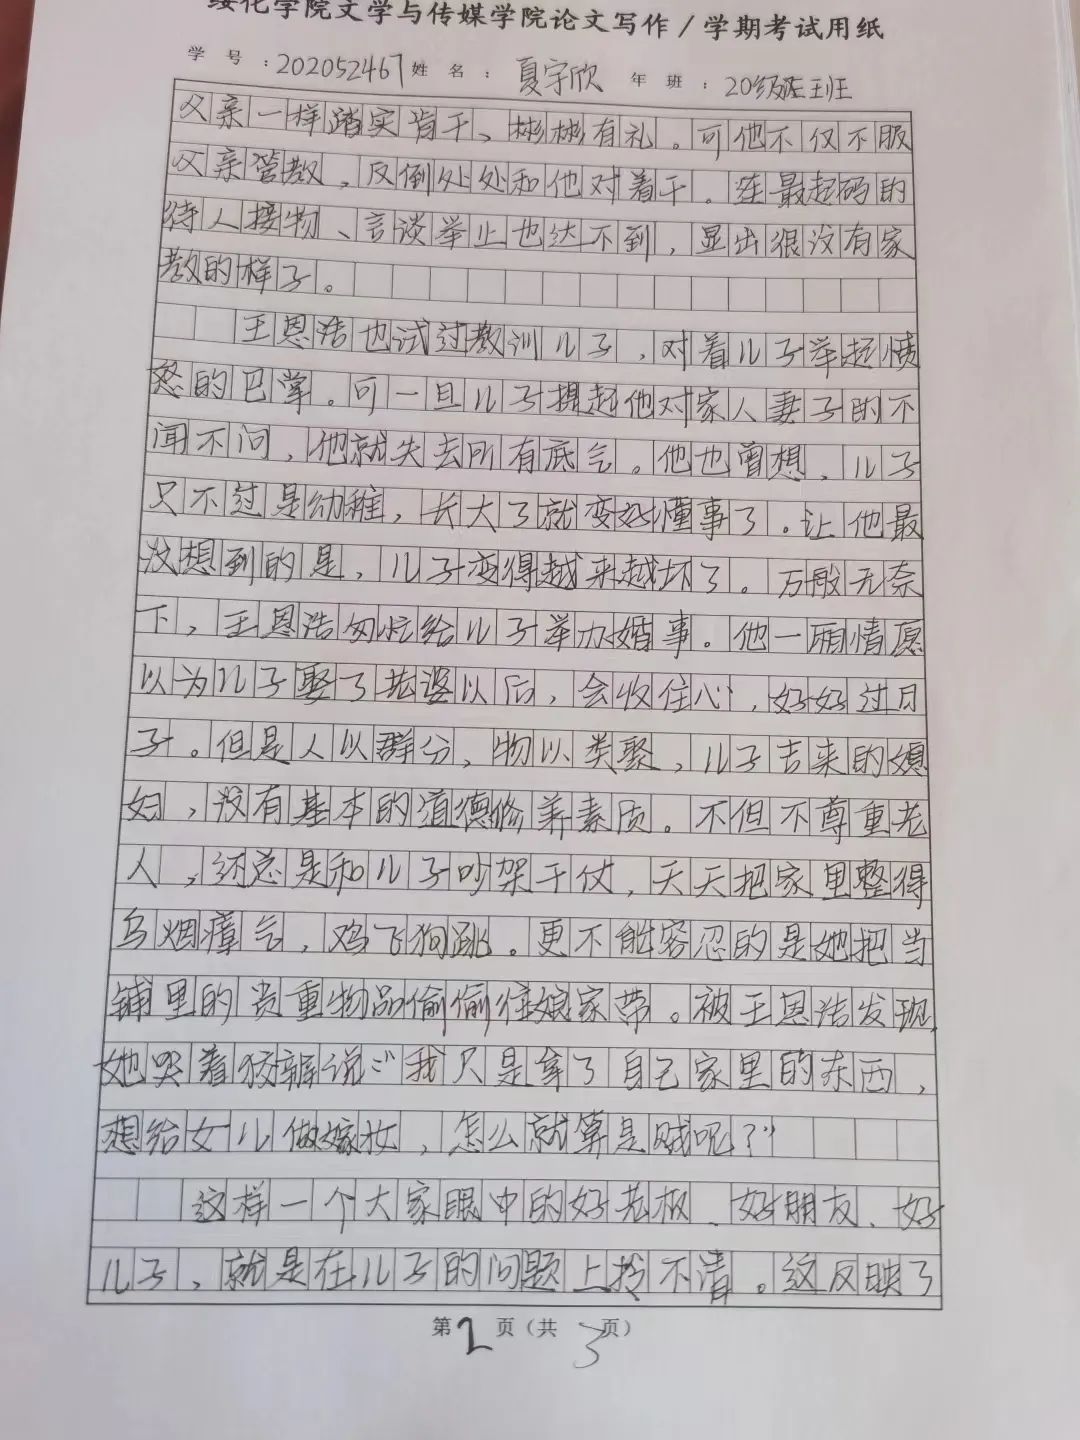 绥化学院文学与传媒学院论文写作/学期考试用纸
学 号 ：202052467 姓 名 ： 夏宇欣 年 班 ：20级班
父亲一样踏实肯干、彬彬有礼。可他不仅不服
父亲管教，反倒处处和他对着干。连最起码的
待人接物、言谈举止也达不到，显出很没有家
教的样子。
王恩浩也试过教训儿子，对着儿子举起愤
怒的巴掌。可一旦儿子提起他对家人妻子的不
闻不问，他就失去所有底气。他也曾想，儿子
只不过是幼稚，长大了就变好懂事了。让他最
没想到的是，儿子变得越来越坏了。万般无奈
下，王恩浩匆忙给儿子举办婚事。他一厢情愿
以为儿子娶了老婆以后，会收住心，好好过日
子。但是人以群分，物以类聚，儿子吉来的媳
妇，没有基本的道德修养素质。不但不尊重老
人，还总是和儿子吵架干仗，天天把家里整得
乌烟瘴气，鸡飞狗跳。更不能容忍的是她把当
铺里的贵重物品偷偷往娘家带。被王恩浩发现，
她哭着狡辩说：“我只是拿了自己家里的东西，
想给女儿做嫁妆，怎么就算是贼呢？”
这样一个大家眼中的好老板、好朋友、好
儿子，就是在儿子的问题上拎不清。这反映了
第2页（共3页）